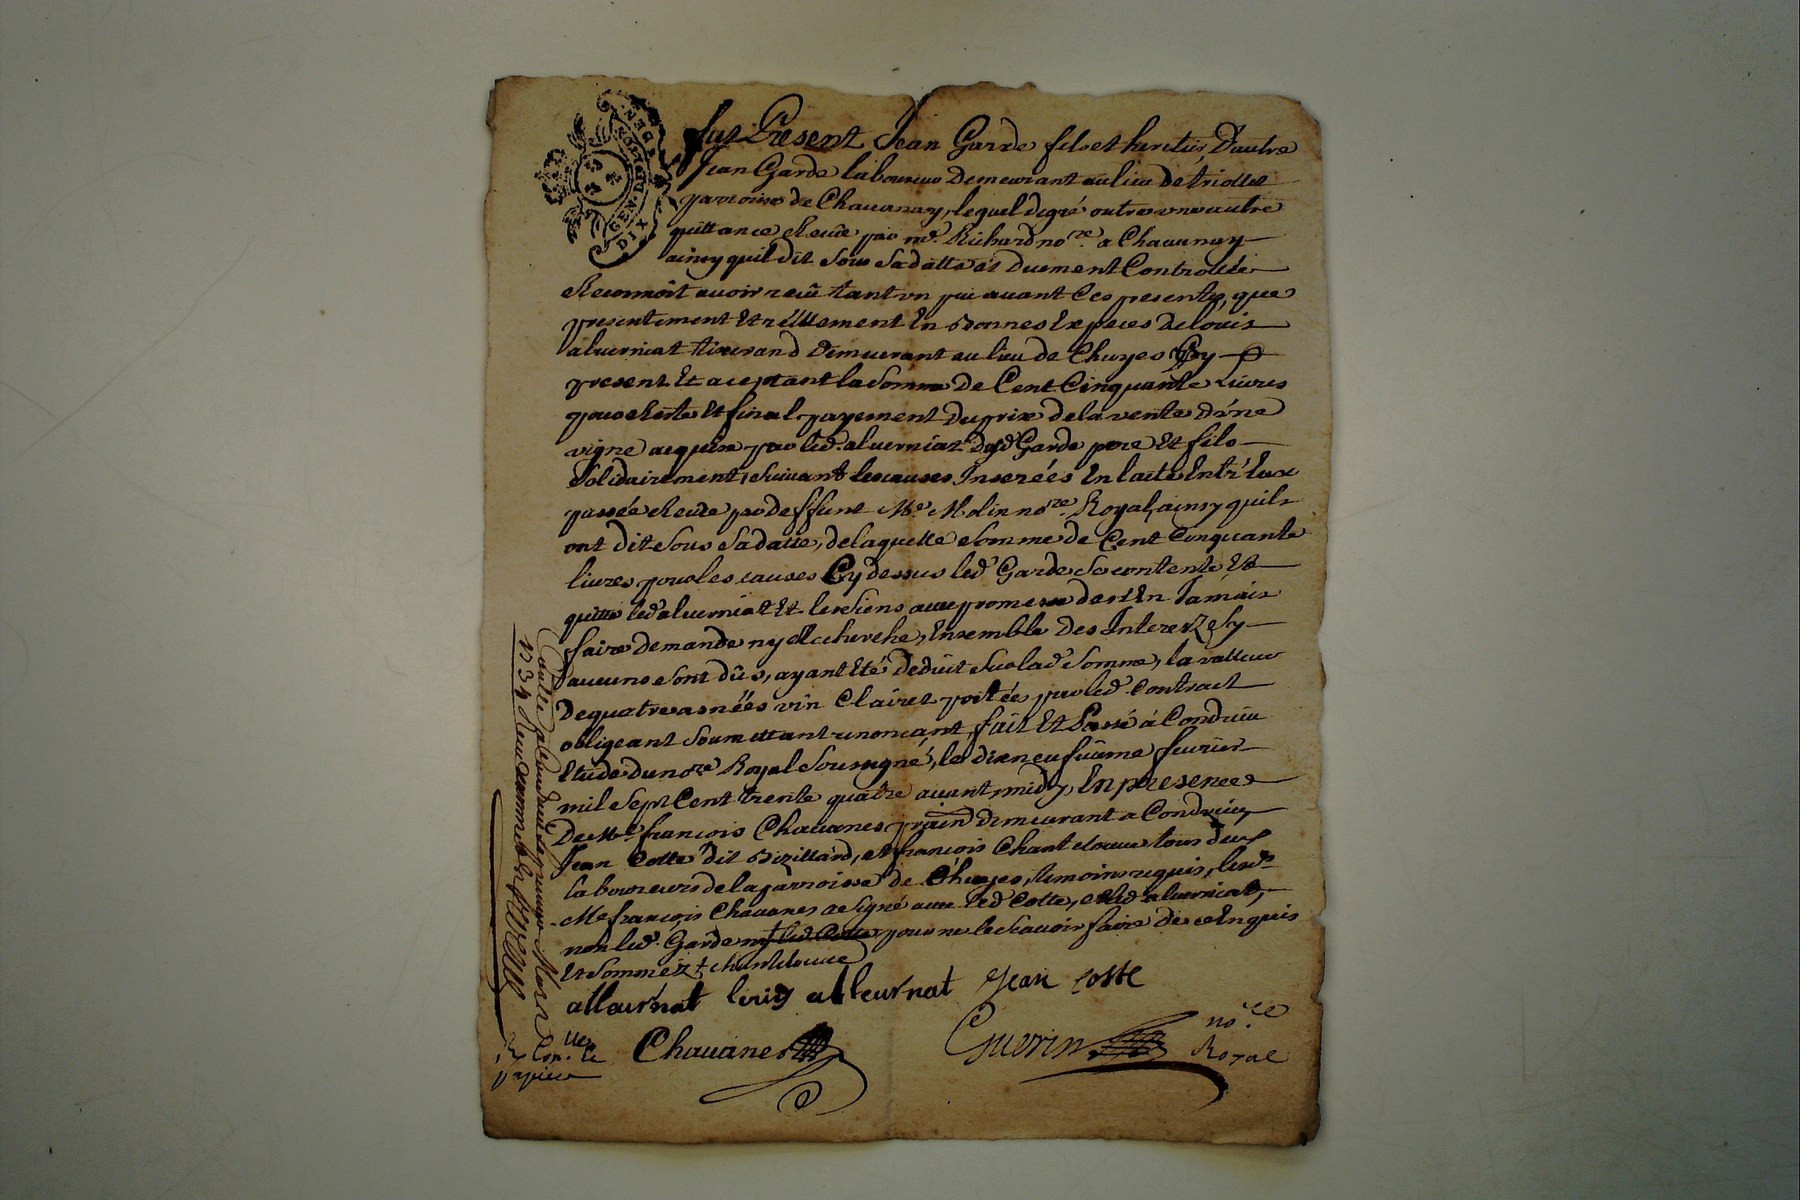 DIX DEN
GEN DE LYON
fut Present Jean Garde fils et heritier D'autre
Jean Garde laboureur Demeurant au lieu de triollet
parroisse de Chavanay, lequel de gré outre une autre
quittance Receüe par me. Richard nore. a Chavanay
ainsy quil dit sous sa datte et Duement Controllée
Reconnoit avoir receü tant cy par avant Ces presentes, que
presentement Et réellement En Bonnes Especes De Louis
alverniat tixerand Demeurant au lieu de Chuyes Cy
present Et aceptant la somme De Cent Cinquante Livres
pour Reste Et final payement Du prix de la vente D'une
vigne acquise par led. alverniat desd Garde pere Et fils
solidairement, suivant les causes Inserées En l'acte Entr'Eux
passée Receüe par deffunt Me. Molin nore. Royal, ainsy quils
ont dit sous sa datte, de laquelle somme de Cent Cinquante
livres pour les causes Cy dessus led Garde se contente Et
quitte led alverniat Et les siens avec promesse de n'En Jamais
faire demande ny Recherche, Ensemble Des Interez sy
aucuns sont dûs, ayant Eté deduit sur lad somme, la valleur
De quatre asnéés vin Clairet portées par led Contract
obligeant soumettant renonçant, fait Et Passé à Condrieu
Etude du nore Royal soussigné, le dixneufuieme feurier
mil sept Cent trente quatre auant midy, En presences
De Me françois Chavanes prain Demeurant a Condrieu,
Jean Cotte dit Bizillard, et françois Chantelouve tous deux
laboureurs de la parroisse de Chuyes, temoins requis, lesd
Me françois Chavanes a signé avec led Cotte, et led alverniat,
non led. Garde ny led Cotte pour ne le sçavoir faire de ce Enquis
Et sommez + chantelouve
allaurnat louis alleurnat Jean coste
Chavanes
Guerin nore
Royal